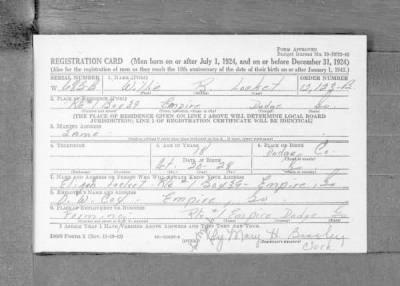 Form Approved
REGISTRATION CARD (Men born on or after July 1, 1924, and on or before December 31, 1924)
(Also for the registration of men as they reach the 18th anniversary of the date of their birth on or after January 1, 1943.)
SERIAL NUMBER 1. NAME (Print) ORDER NUMBER
W Willie R. Locket
2. PLACE OF RESIDENCE (Print)
Rt 1 Box 39 Empire Dodge Ga
(THE PLACE OF RESIDENCE GIVEN ON LINE 2 ABOVE WILL DETERMINE LOCAL BOARD
JURISDICTION; LINE 2 OF REGISTRATION CERTIFICATE WILL BE IDENTICAL)
3. MAILING ADDRESS
Same
4. TELEPHONE 5. AGE IN YEARS 6. PLACE OF BIRTH
18 Dodge Co.
DATE OF BIRTH
Ga
7. NAME AND ADDRESS OF PERSON WHO WILL ALWAYS KNOW YOUR ADDRESS
Locket Rt #1 Box 39 - Empire, Ga
8. EMPLOYER'S NAME AND ADDRESS
D. W. Coy - Empire, Ga
9. PLACE OF EMPLOYMENT OR BUSINESS
Farming Rt #1 Empire Dodge Ga
I AFFIRM THAT I HAVE VERIFIED ABOVE ANSWERS AND THAT THEY ARE TRUE.
DSS Form 1 (OVER) By Mary H.
Clerk